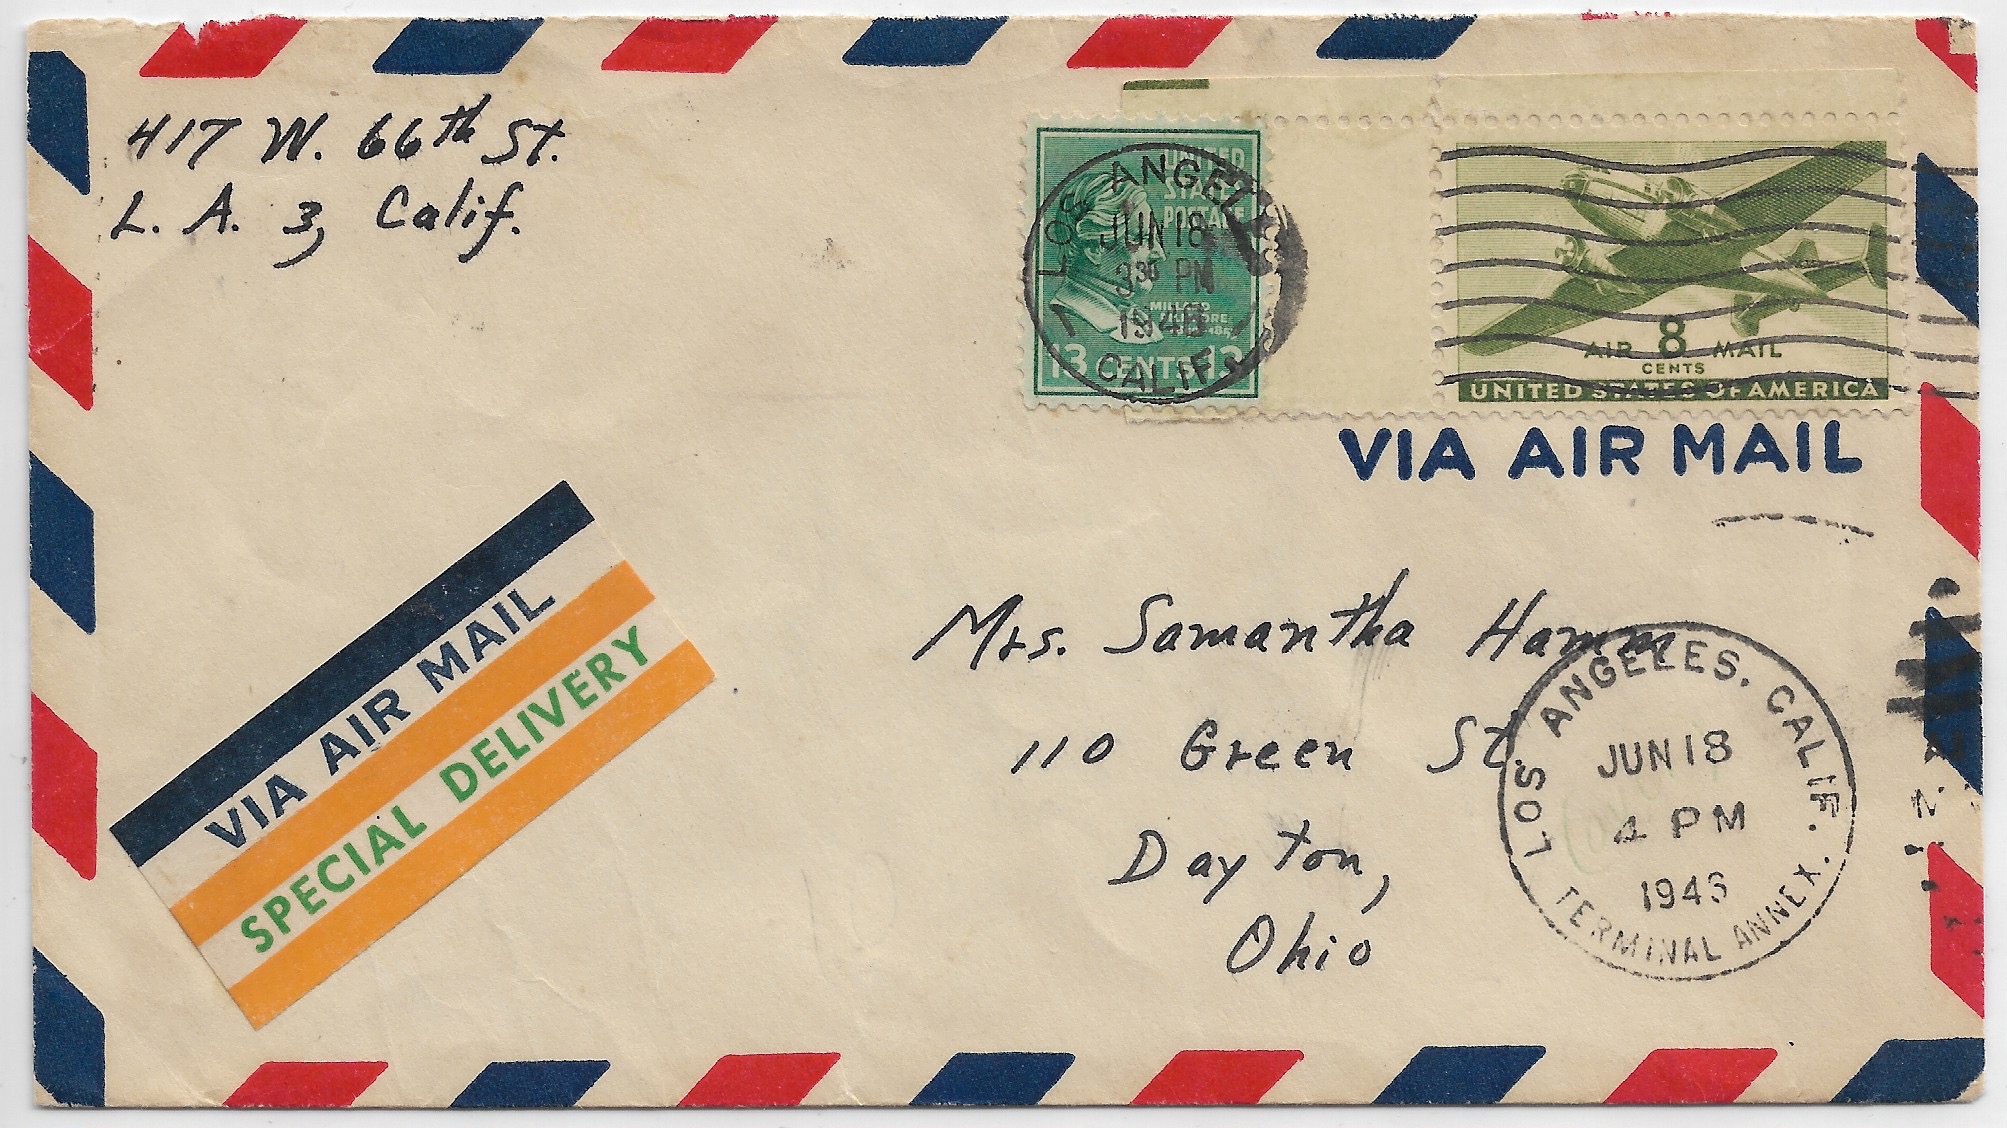 417 W. 66th St.
L. A. 3, Calif.
UNITED
STATES
POSTAGE
MILLARD
FILLMORE
13 CENTS 13
LOS ANGELES
JUN 18
3 30 PM
CALIF.
AIR 8 MAIL
CENTS
UNITED STATES OF AMERICA
VIA AIR MAIL
VIA AIR MAIL
SPECIAL DELIVERY
Mrs. Samantha Hamm
110 Green St.
Dayton,
Ohio
LOS ANGELES, CALIF.
JUN 18
4 PM
1946
TERMINAL ANNEX.